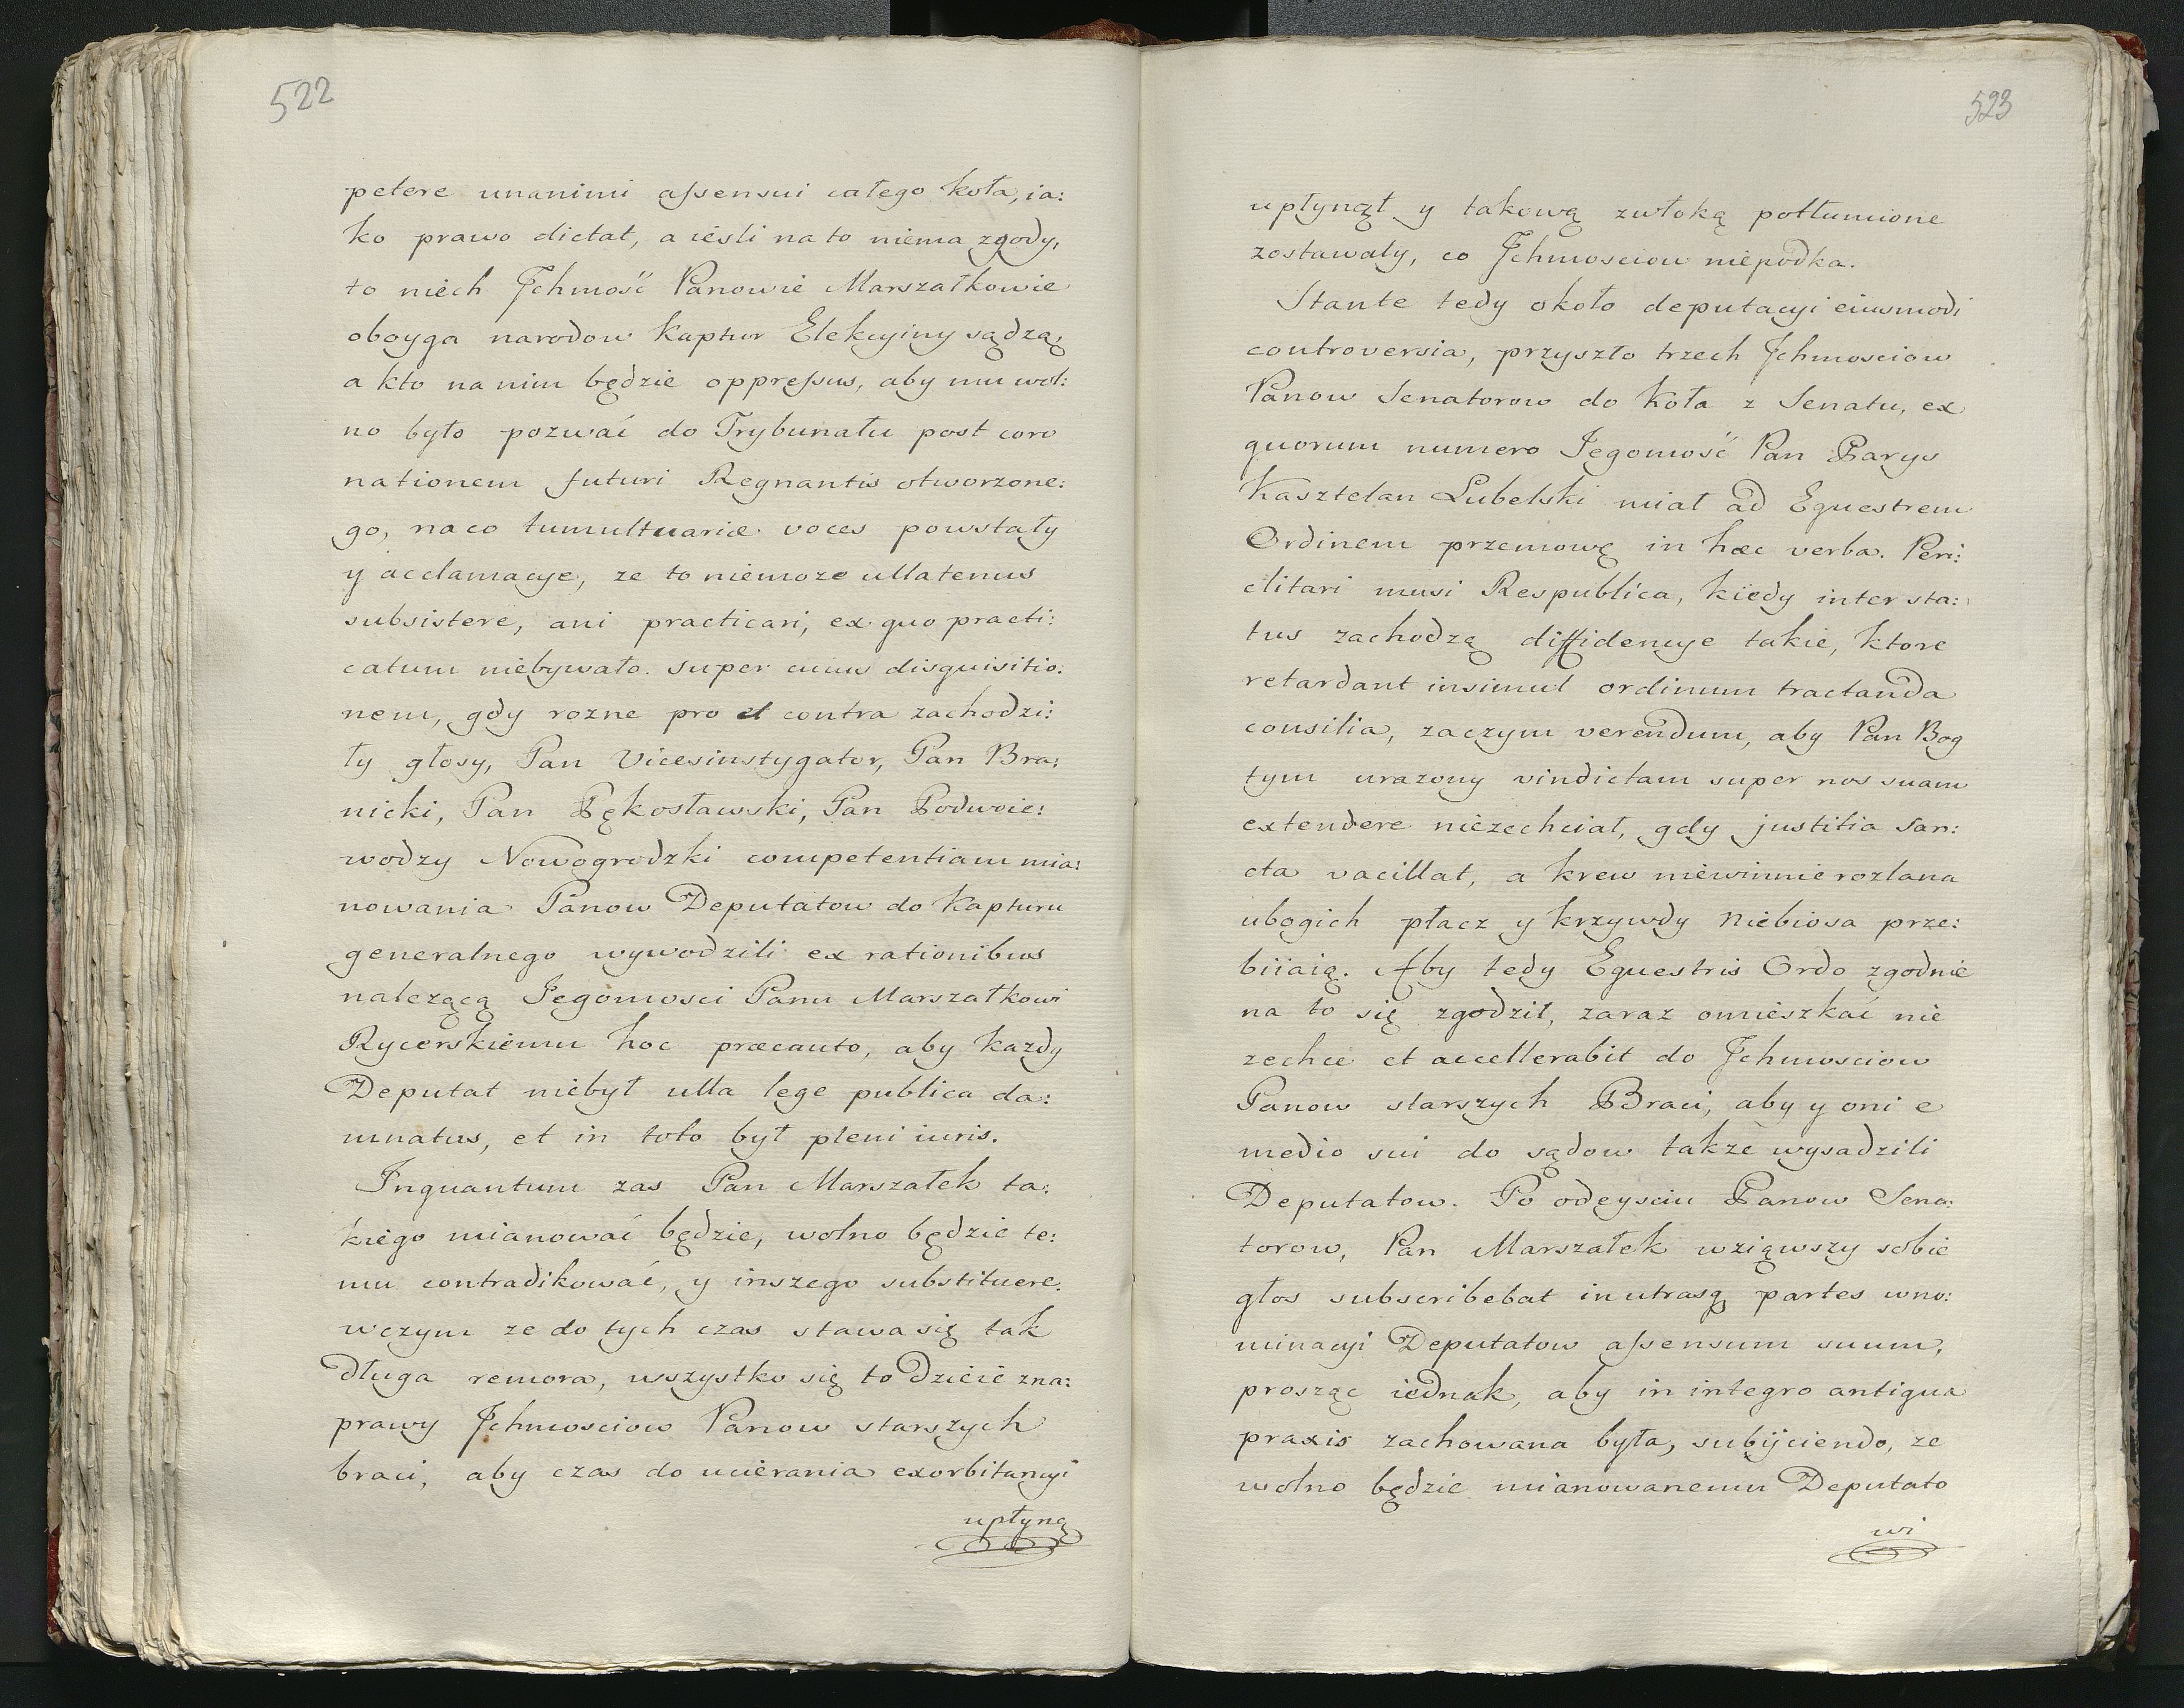 522
petere unanimi assensui całego koła, ia:
ko prawo dictat, a iesli na to niema zgody,
to niech Jchmość Panowie Marszałkowie
oboyga narodow Kaptur Elekcyiny sądzą,
a kto na nim będzie oppressus, aby mu wol:
no było pozwać do Trybunału post coro
nationem futuri Regnantis otworzone:
go, naco tumultuariæ voces powstały
y acclamacye, ze to niemoze ullatenus
subsistere, ani practicari, ex quo practi:
catum niebywało. super cuius disquisitio:
nem, gdy rozne pro et contra zachodzi:
ły głosy, Pan Vicesinstygator, Pan Bra:
nicki, Pan Pękosławski, Pan Podwoie:
wodzy Nowogrodzki competentiam mia:
nowania Panow Deputatow do Kapturu
generalnego wywodzili ex rationibus
nalezącą Jegomosci Panu Marszałkowi
Rycerskiemu hoc præcauto, aby kazdy
Deputat niebył ulla lege publica da:
mnatus, et in toto był pleni iuris.
Inquantum zas Pan Marszałek ta:
kiego mianować będzie, wolno będzie te:
mu contradikować, y inszego substituere.
wczym ze do tych czas stawa się tak
długa remora, wszystko się to dzieie zna:
prawy Jchmosciow Panow starszych
braci, aby czas do ucierania exorbitancyi
upłyną
523
upłynął y takową zwłoką potłumione
zostawały, co Jchmosciow niepodka.
Stante tedy około deputacyi eiusmodi
controversia, przyszło trzech Jchmosciow
Panow Senatorow do Koła z Senatu, ex
quorum numero Jegomość Pan Parys
Kasztelan Lubelski miał ad Equestrem
Ordinem przemowę in hæc verba. Peri:
clitari musi Respublica, kiedy inter sta:
tus zachodzą diffidencye takie, ktore
retardant insimul ordinum tractanda
consilia, zaczym verendum, aby Pan Bog
tym urazony vindictam super nos suam
extendere niezechciał, gdy justitia San:
cta vacillat, a krew niewinnie rozlana
ubogich płacz y krzywdy Niebiosa prze:
biiaią. Aby tedy Equestris Ordo zgodnie
na to się zgodził, zaraz omieszkać nie
zechce et accellerabit do Jchmosciow
Panow starszych Braci, aby y oni e
medio sui do sądow takze wysadzili
Deputatow. Po odeysciu Panow Sena:
torow, Pan Marszałek wziąwszy sobie
głos subscribebat in utrasq partes wno:
minacyi Deputatow assensum suum,
prosząc iednak, aby in integro antiqua
praxis zachowana była, subijciendo, ze
wolno będzie mianowanemu Deputato
wi